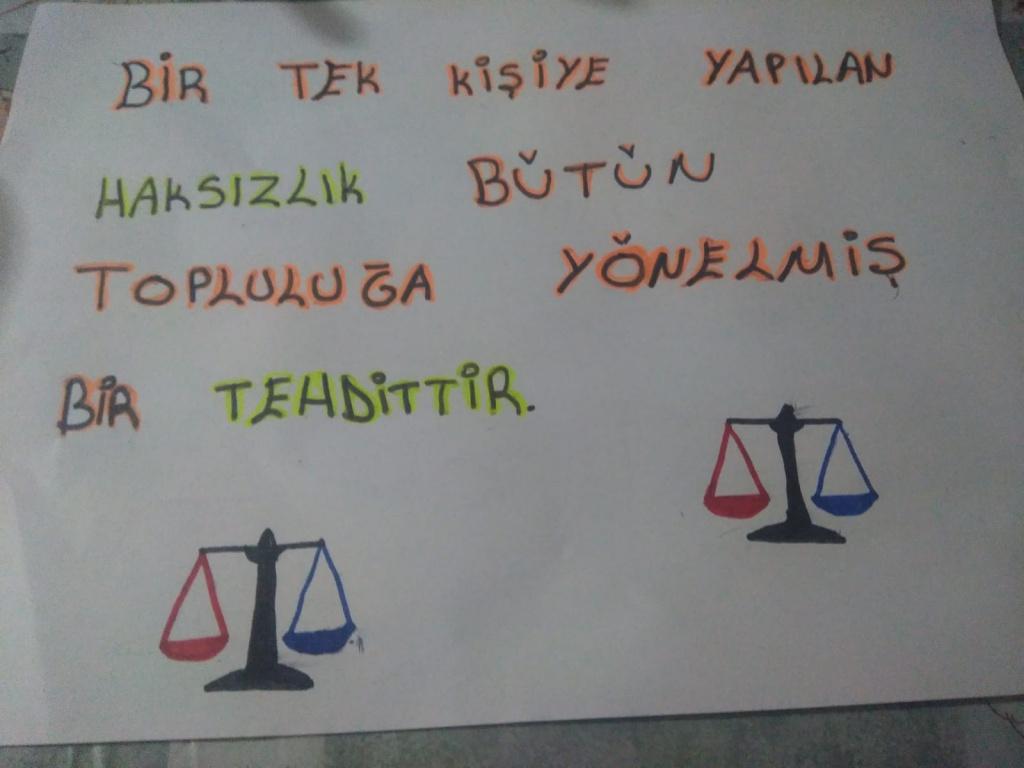 BİR TEK KİŞİYE YAPILAN
HAKSIZLIK BÜTÜN
TOPLULUĞA YÖNELMİŞ
BİR TEHDİTTİR.